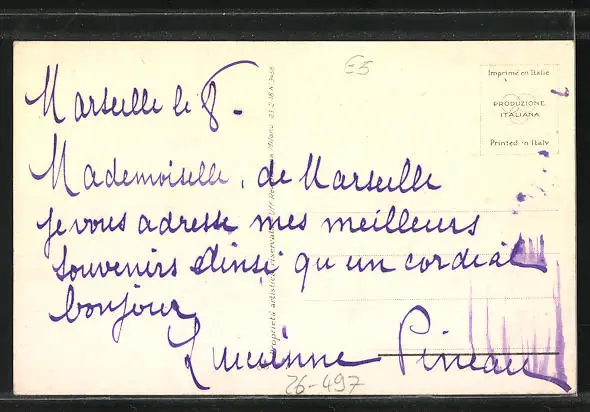 Marseille le 8.
Mademoiselle, de Marseille
je vous adresse mes meilleurs
souvenirs ainsi qu un cordial
bonjour
Lucienne Pineau
E5
Imprimé en Italie
PRODUZIONE
ITALIANA
Printed in Italy
Proprietà artistica riservata
26-497